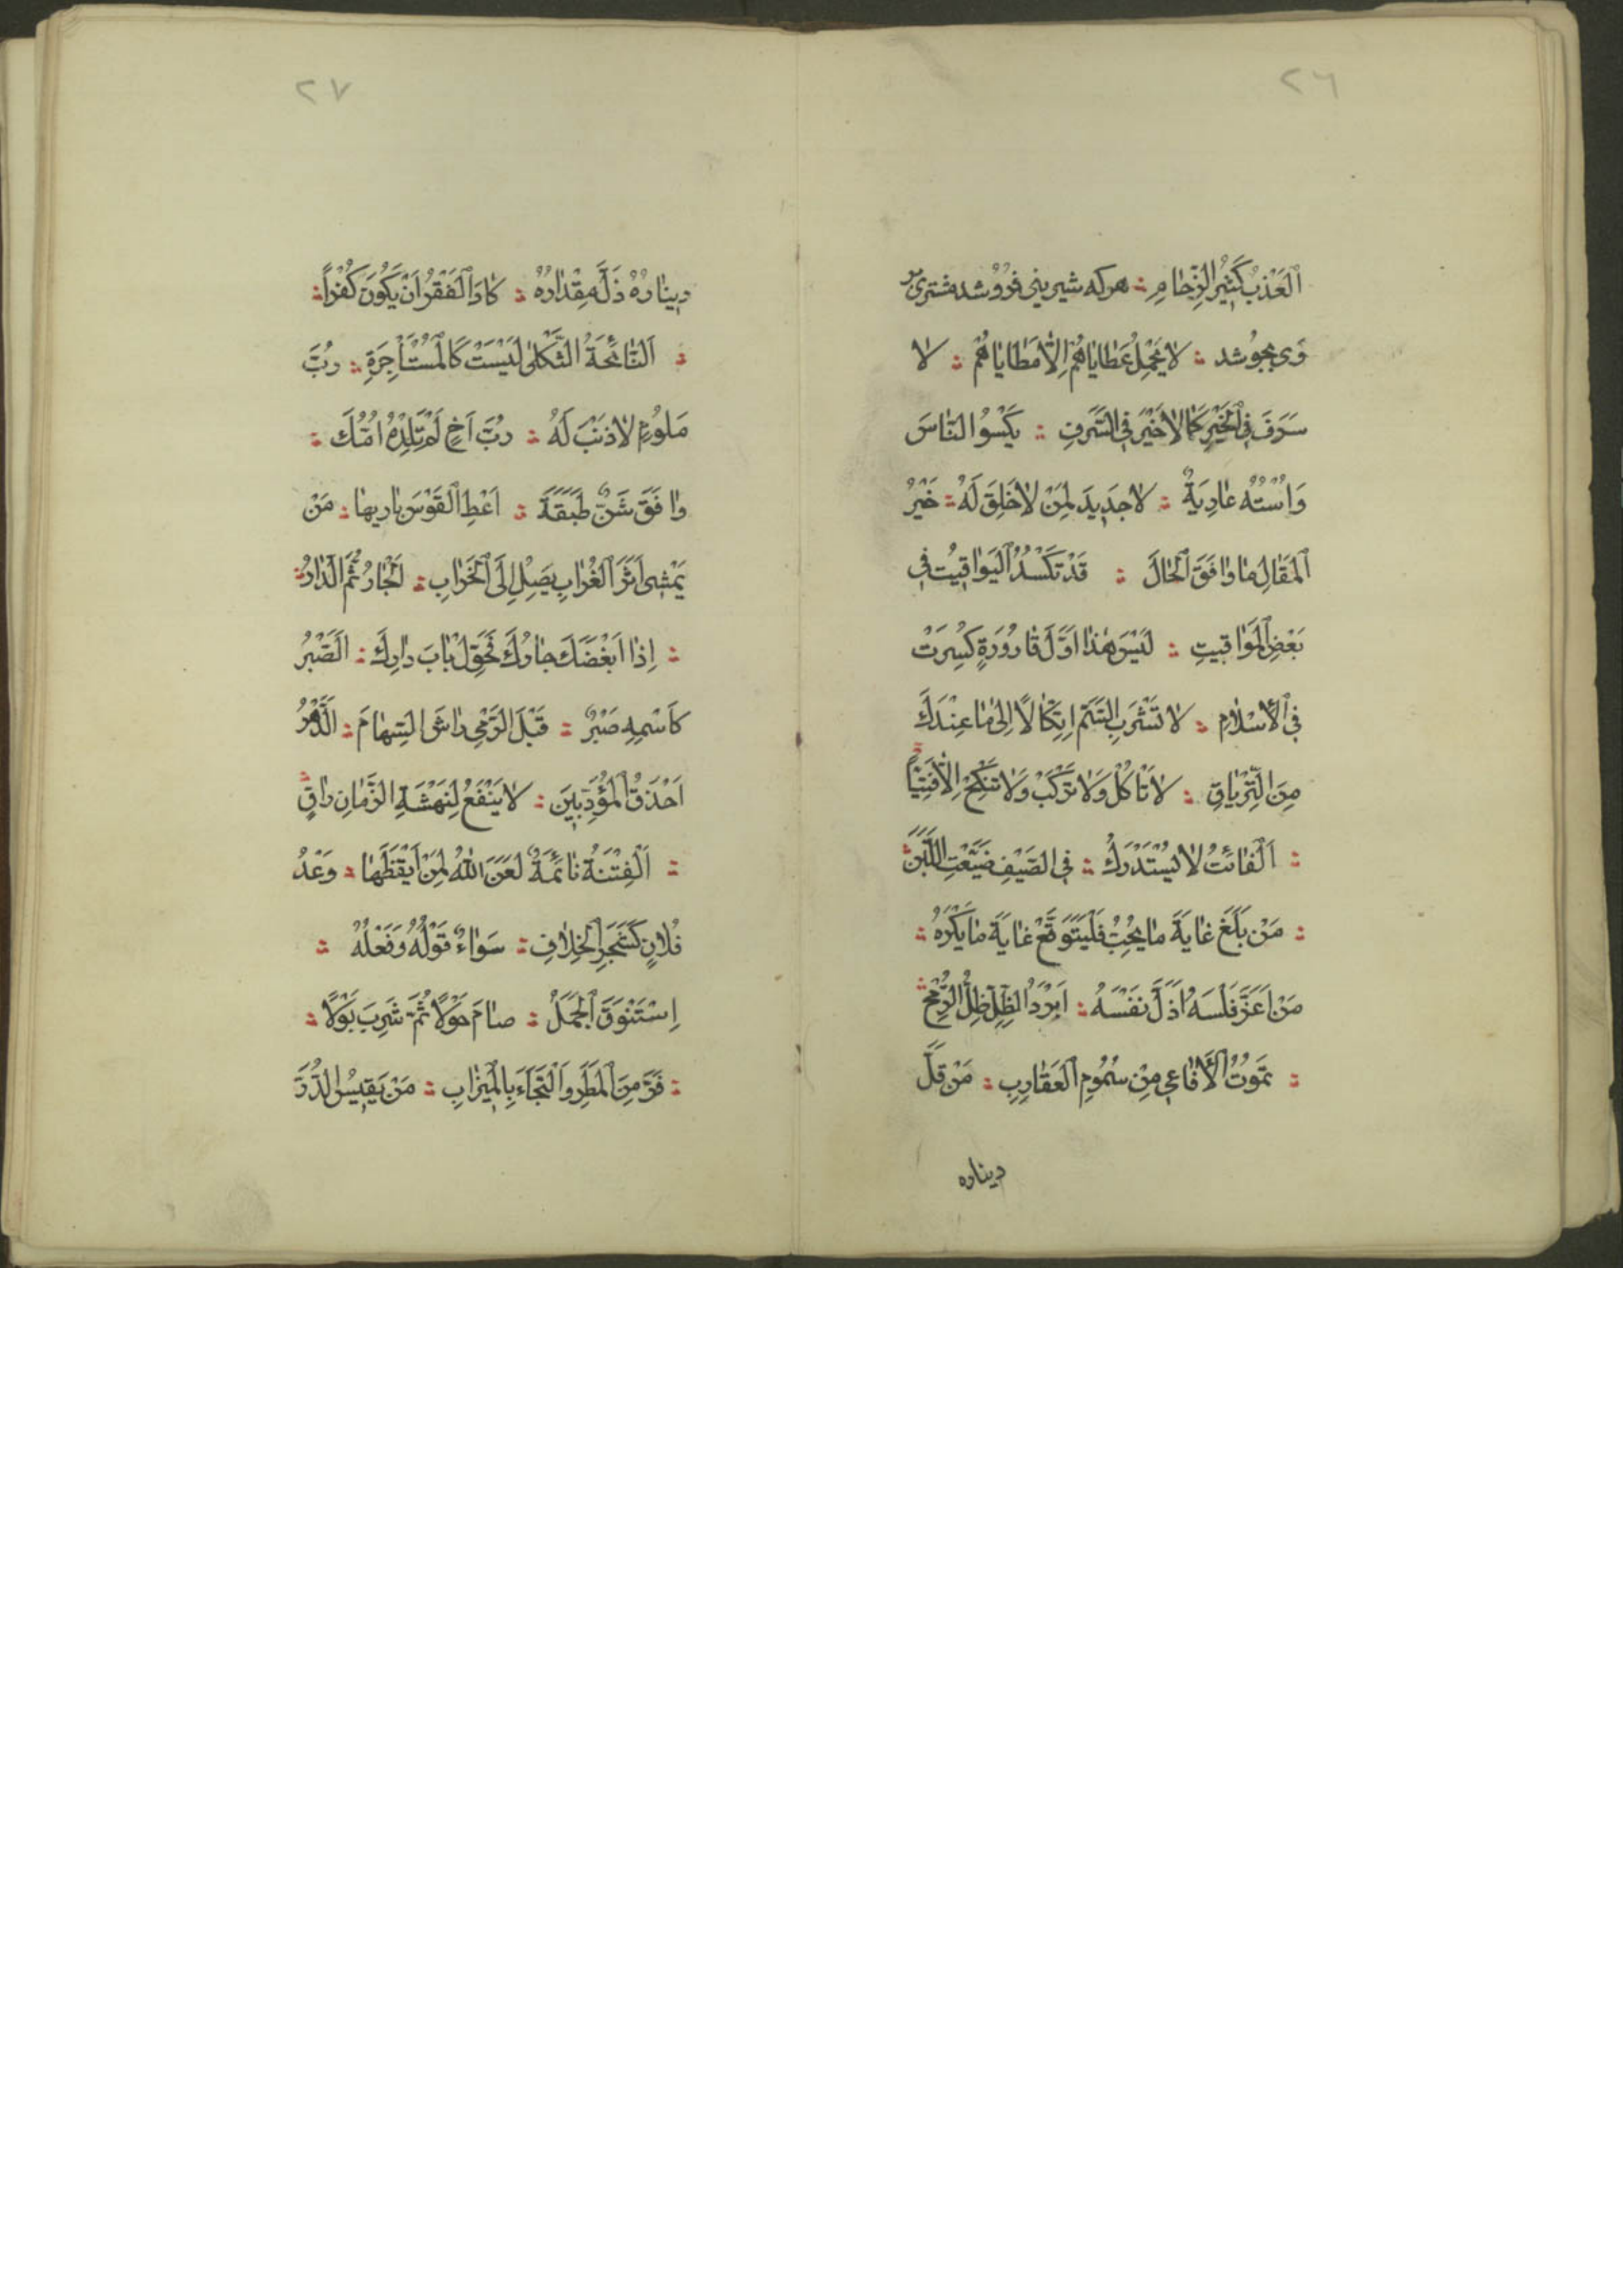 ٢٦
اَلْعَذْبُ كَثِيرُ الزِّحَامِ ؞ هركه شيرينى فروشد مشترى بر
وَى بجوشد ؞ لا يَحْمِلُ عَطاياهُمْ اِلّا مَطاياهُمْ ؞ لا
سَرَفَ فِى الْخَيْرِ كَمَا لا خَيْرَ فِى السَّرَفِ ؞ يَكْسُوا النّاسَ
وَاسْتُهُ عارِيَةٌ ؞ لا جَدِيدَ لِمَنْ لا خَلِقَ لَهُ ؞ خَيْرُ
الْمَقالِ ما وافَقَ الْحالَ ؞ قَدْ تَكْسُدُ الْيَواقِيتُ فِى
بَعْضِ الْمَواقيتِ ؞ لَيْسَ هٰذا اَوَّلَ قارُورَةٍ كُسِرَتْ
فِى الْاِسْلامِ ؞ لا تَشْرَبِ السَّمَّ اِتِّكالًا اِلىٰ ما عِنْدَكَ
مِنَ التِّرْياقِ ؞ لا تَأْكُلْ وَلا تَرْكَبْ وَلا تَنْكِحْ اِلّا فَتِيًّا ؞
؞ اَلْفائتُ لا يُسْتَدْرَكُ ؞ فِى الصَّيْفِ ضَيَّعْتِ اللَّبَنَ ؞
؞ مَنْ بَلَغَ غايَةَ ما يُحِبُّ فَلْيَتَوَقَّعْ غايَةَ ما يَكْرَهُ ؞
مَنْ اَعَزَّ فَلْسَهُ اَذَلَّ نَفْسَهُ ؞ اَبْرَدُ الظِّلِّ ظِلُّ الرُّمْحِ ؞
؞ تَمَوتُ الْاَفاعِى مِنْ سُمُومِ الْعَقارِبِ ؞ مَنْ قَلَّ
ديناره
٢٧
دِينارُهُ ذَلَّ مِقْدارُهُ ؞ كادَ الْفَقْرُ اَنْ يَكُونَ كُفْرًا ؞
؞ اَلنّائحَةُ الثَّكْلىٰ لَيْسَتْ كَالْمُسْتَأْجِرَةِ ؞ رُبَّ
مَلُومٍ لا ذَنْبَ لَهُ ؞ رُبَّ اَخٍ لَمْ تَلِدْهُ اُمُّكَ ؞
وافَقَ شَنٌّ طَبَقَةَ ؞ اَعْطِ الْقَوْسَ باريها ؞ مَنْ
يَمْشِى اَثَرَ الْغُرابِ يَصِلِ اِلَى الْخَرابِ ؞ اَلْجارُ ثُمَّ الدّارُ ؞
؞ اِذا اَبْغَضَكَ جارُكَ فَحَوِّلْ بابَ دارِكَ ؞ اَلصَّبْرُ
كَاسْمِهِ صَبْرٌ ؞ قَبْلَ الرَّمْىِ راشَ السِّهامَ ؞ اَلدَّهْرُ
اَحْذَقُ الْمُؤَدِّبِينَ ؞ لا يَنْفَعُ لِنَهْشَةِ الزَّمانِ راقٍ ؞
؞ اَلْفِتْنَةُ نائمَةٌ لَعَنَ اللّٰهُ لِمَنْ اَيْقَظَها ؞ وَعْدُ
فُلانٍ كَشَجَرِ الْخِلافِ ؞ سَواءٌ قَوْلُهُ وَفَعْلُهُ ؞
اِسْتَنْوَقَ الْجَمَلُ ؞ صامَ حَوْلًا ثُمَّ شَرِبَ بَوْلًا ؞
؞ فَرَّ مِنَ الْمَطَرِ وَالْتَجَاَءَ بِالْمِيْزابِ ؞ مَنْ يَقِيسُ الدُّرَّ